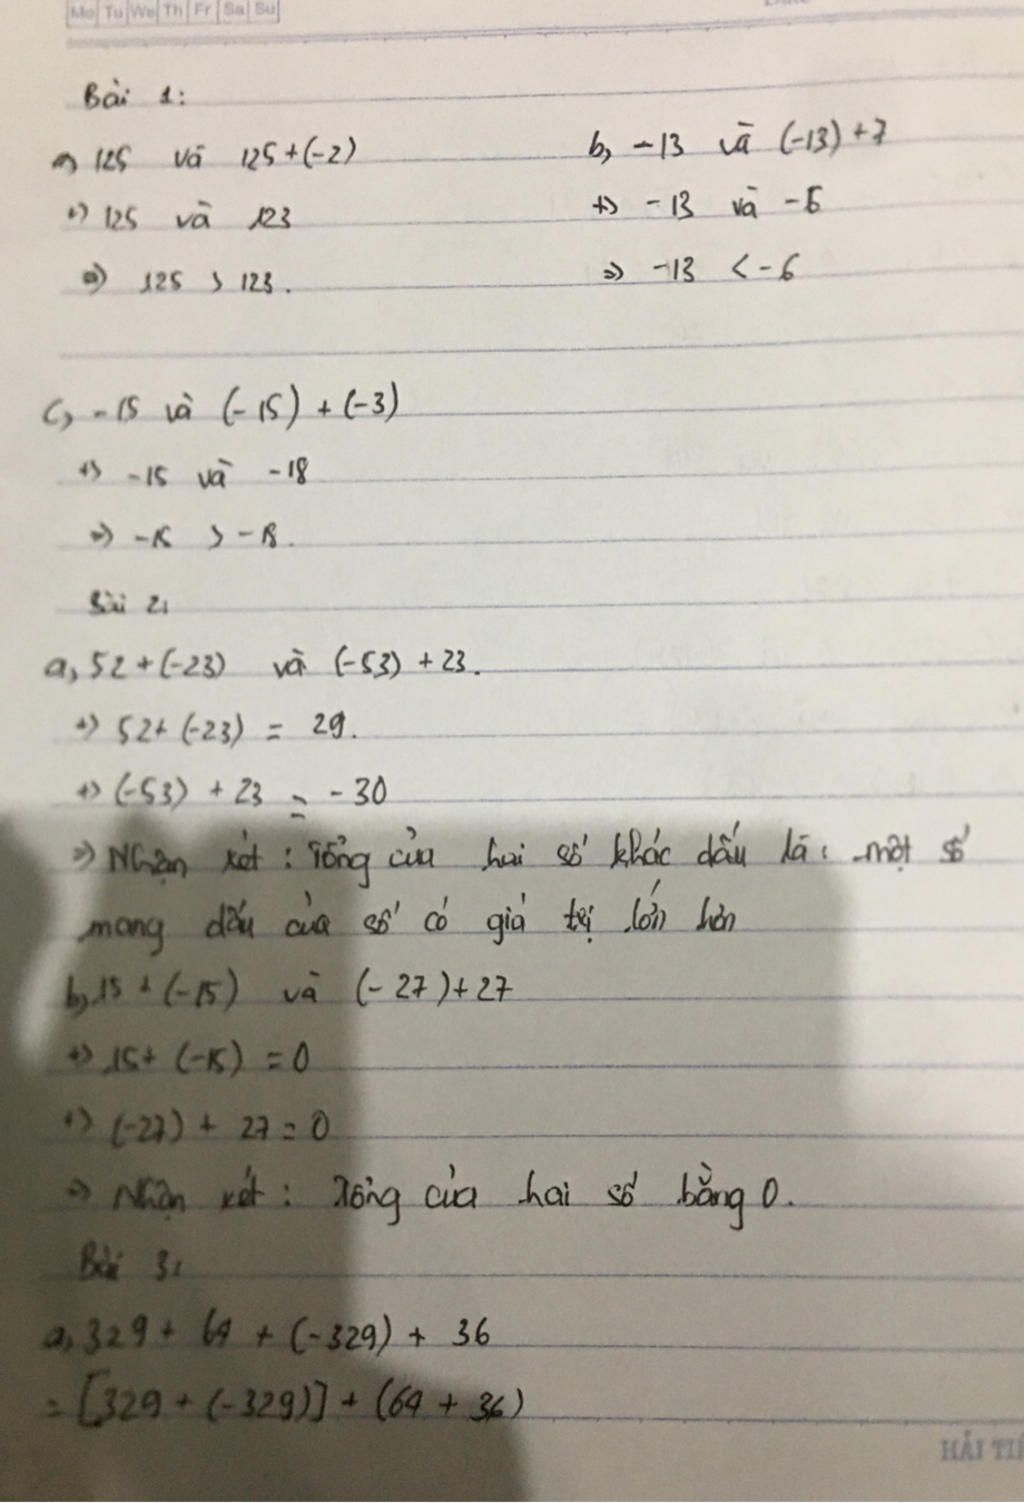 Mo Tu We Th Fr Sa Su
Bài 1:
a, 125 và 125+(-2)
+) 125 và 123
=) 125 > 123.
b, -13 và (-13)+7
+) -13 và -6
=) -13 < -6
c, -15 và (-15) + (-3)
+) -15 và -18
=) -15 > -18.
Bài 2:
a, 52+(-23) và (-53) +23.
+) 52+ (-23) = 29.
+) (-53) + 23 = -30
=) Nhận xét : Tổng của hai số khác dấu là: một số
mang dấu của số có giá trị lớn hơn
b, 15 + (-15) và (-27)+27
+) 15+ (-15) = 0
+) (-27) + 27 = 0
=) Nhận xét : Tổng của hai số bằng 0.
Bài 3:
a, 329 + 64 + (-329) + 36
= [329 + (-329)] + (64 + 36)
HẢI TIẾ